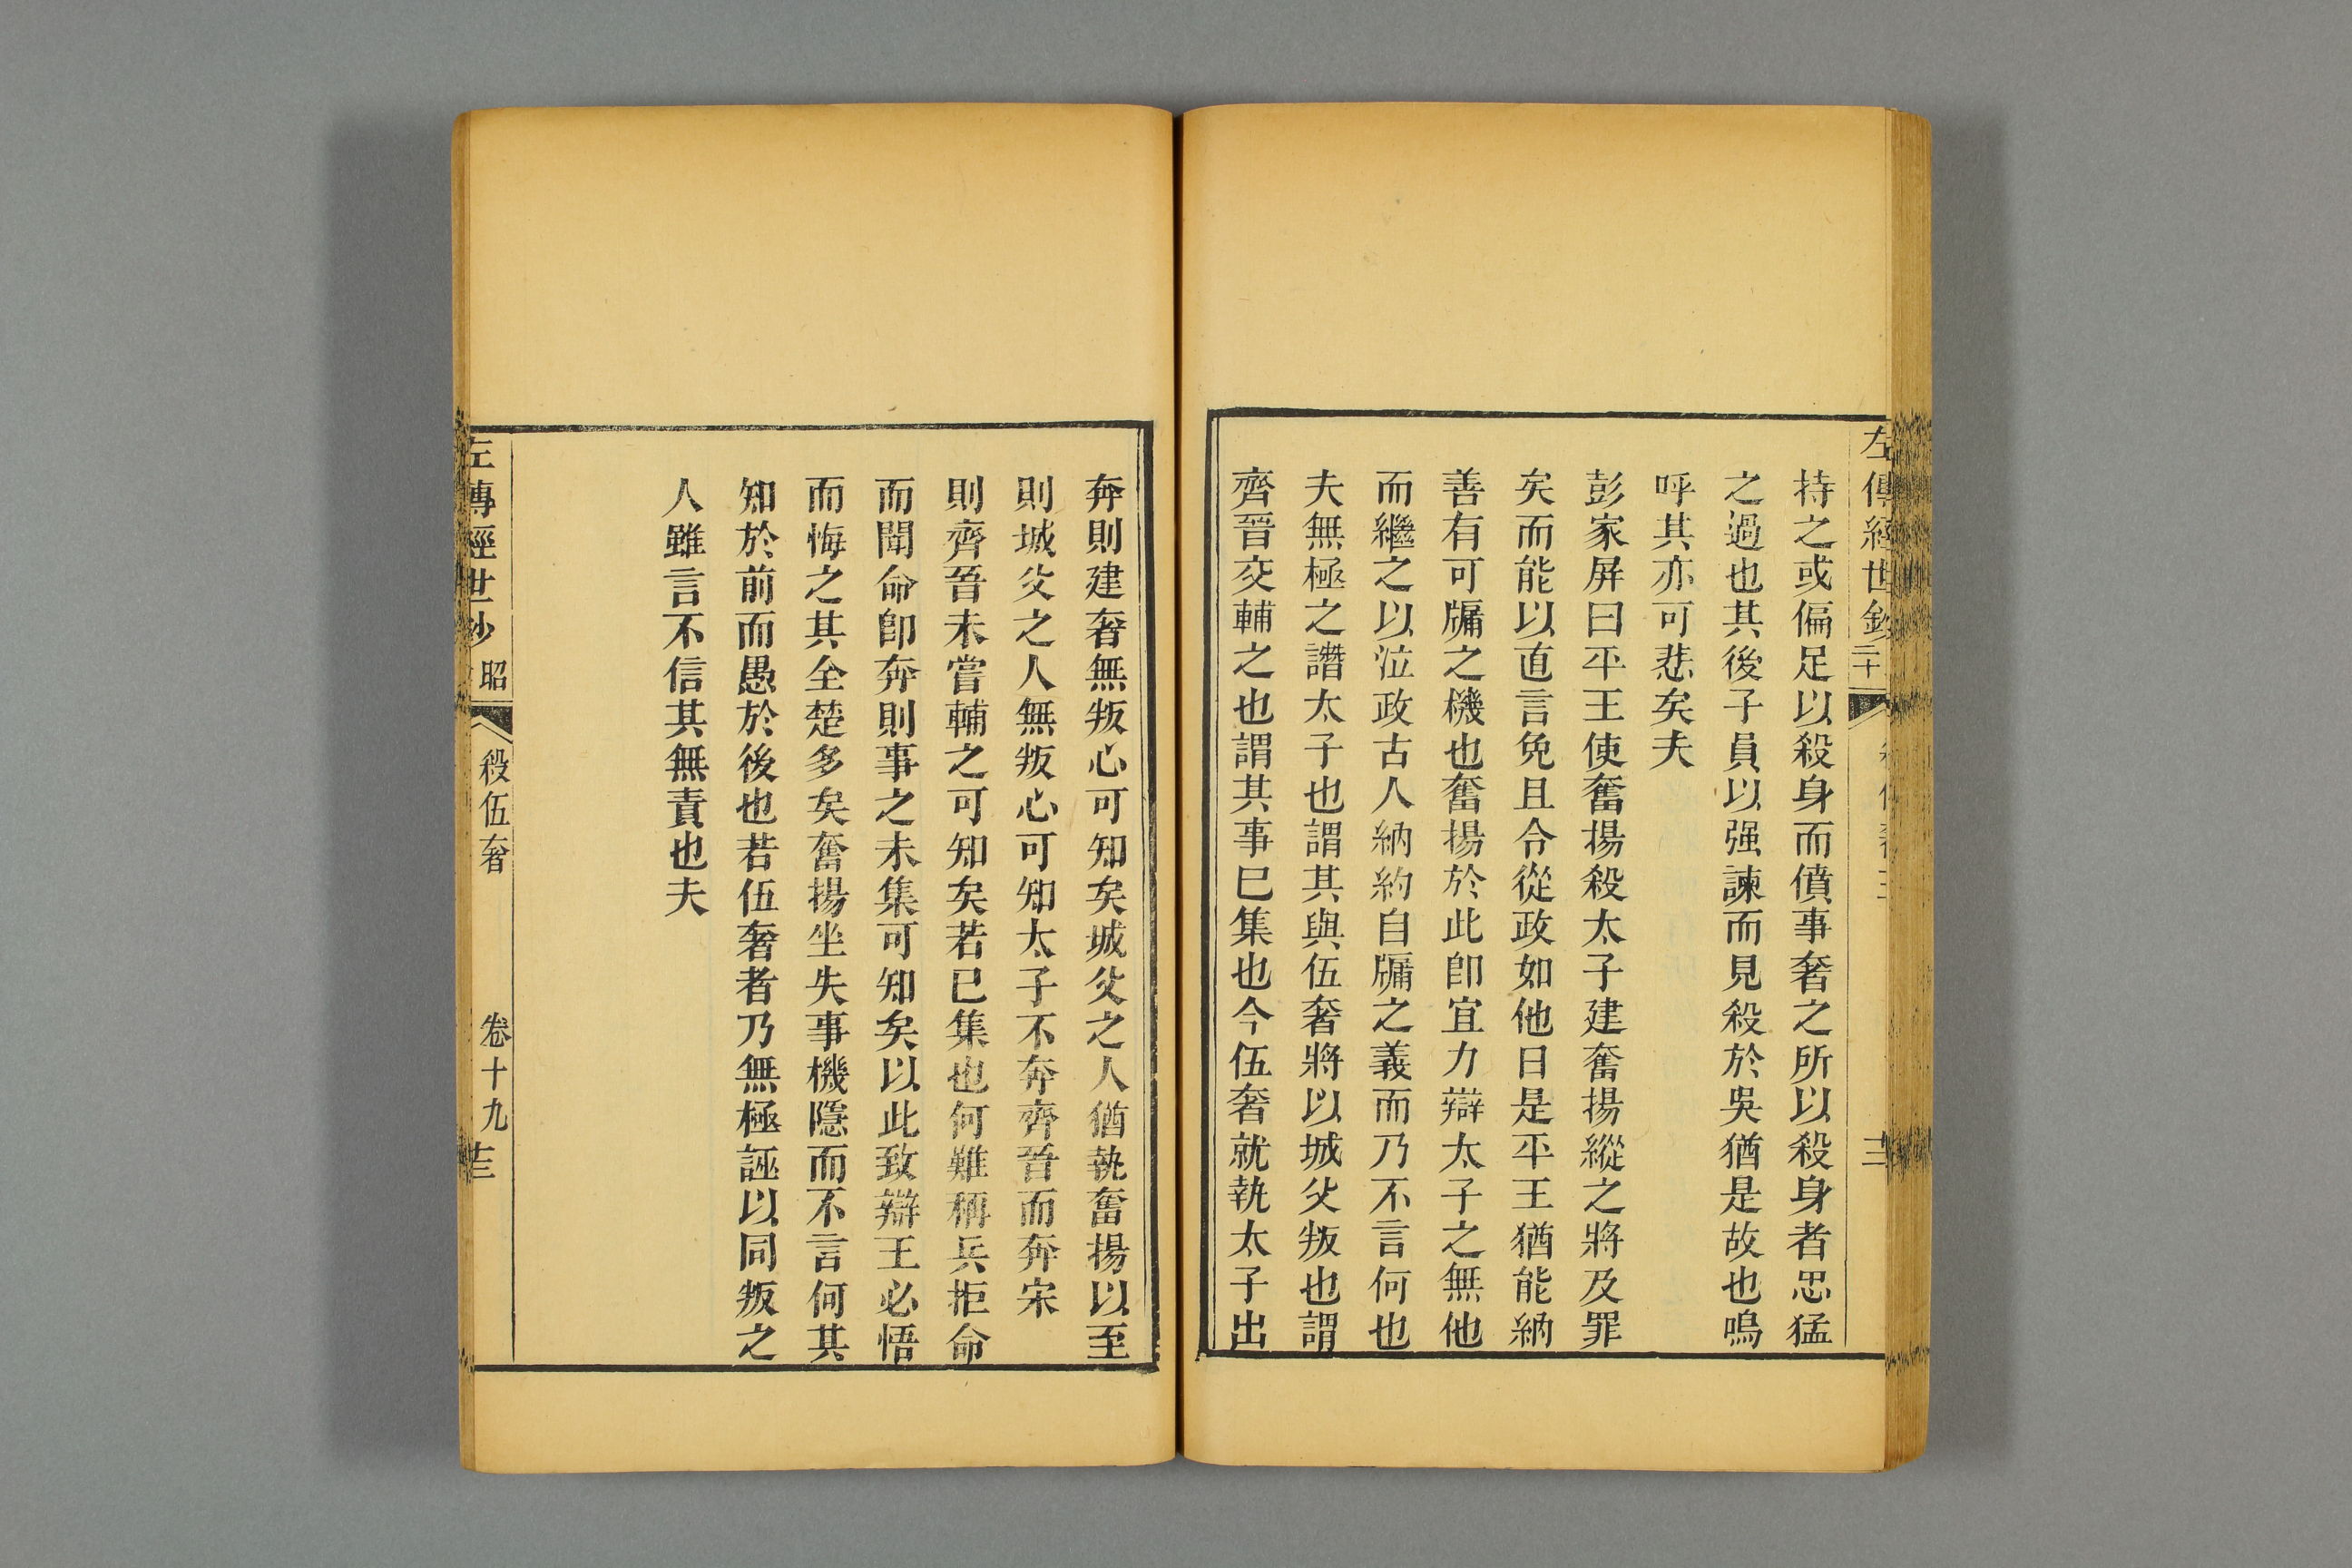 左傳經世鈔
二十
三
持之或偏足以殺身而僨事奢之所以殺身者忠猛
之過也其後子員以强諫而見殺於吳猶是故也嗚
呼其亦可悲矣夫
彭家屏曰平王使奮揚殺太子建奮揚縱之將及罪
矣而能以直言免且令從政如他日是平王猶能納
善有可牖之機也奮揚於此卽宜力辯太子之無他
而繼之以泣政古人納約自牖之義而乃不言何也
夫無極之譖太子也謂其與伍奢將以城父叛也謂
齊晉交輔之也謂其事已集也今伍奢就執太子出
奔則建奢無叛心可知矣城父之人猶執奮揚以至
則城父之人無叛心可知太子不奔齊晉而奔宋
則齊晉未嘗輔之可知矣若已集也何難稱兵拒命
而聞命卽奔則事之未集可知矣以此致辯王必悟
而悔之其全楚多矣奮揚坐失事機隱而不言何其
知於前而愚於後也若伍奢者乃無極誣以同叛之
人雖言不信其無責也夫
左傳經世鈔
昭
殺伍奢
卷十九